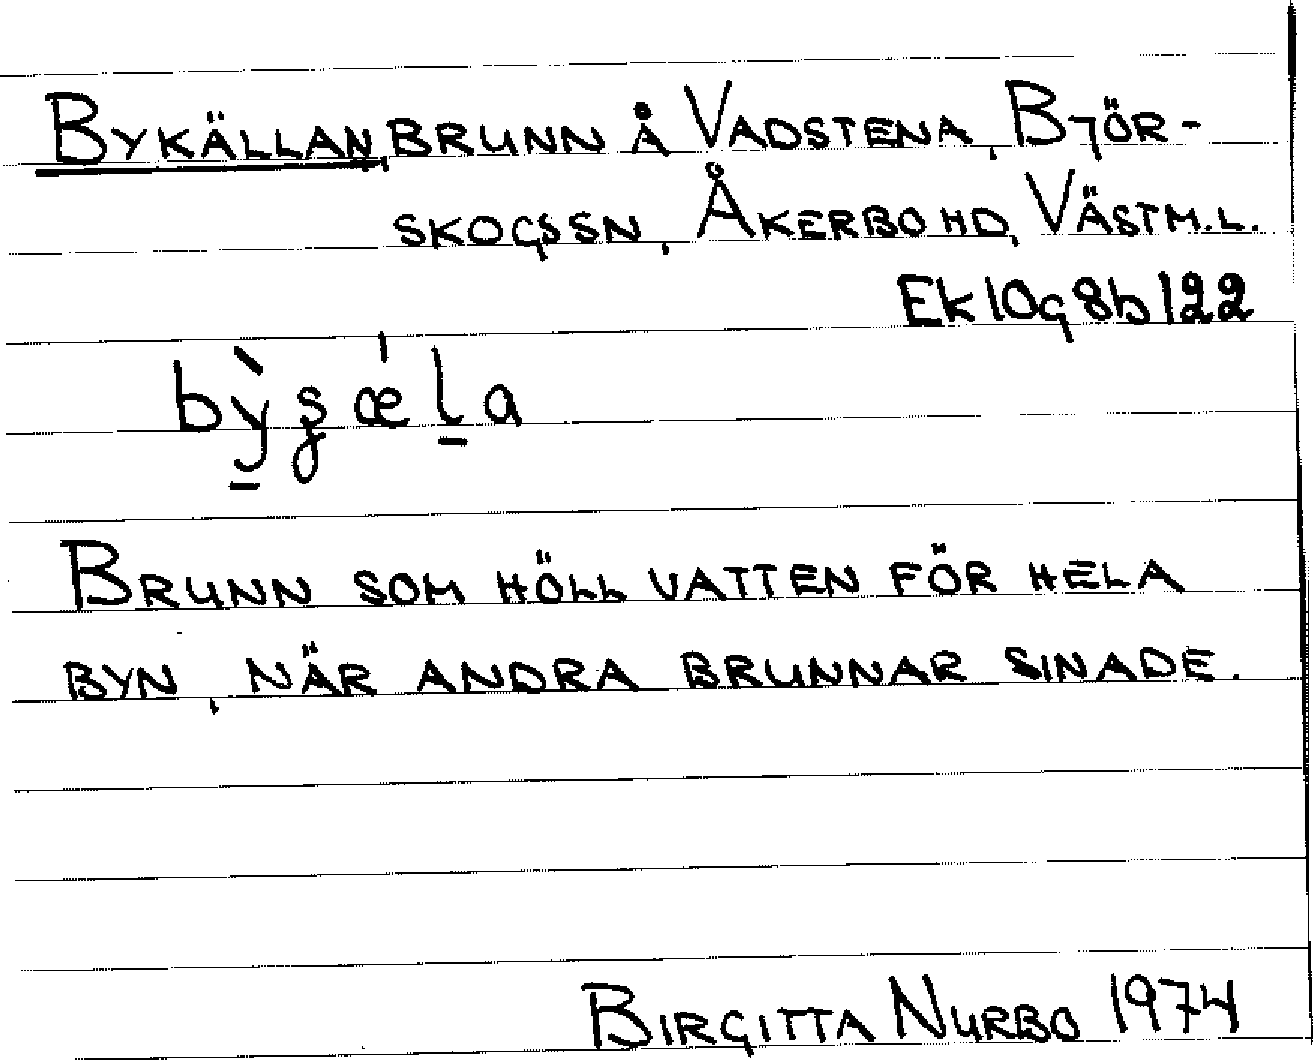 BYKÄLLAN, BRUNN Å VADSTENA, BJÖR-
SKOGSSN, ÅKERBO HD, VÄSTM.L.
Ek 10g 8b 122
BRUNN SOM HÖLL VATTEN FÖR HELA
BYN, NÄR ANDRA BRUNNAR SINADE.
BIRGITTA NURBO 1974